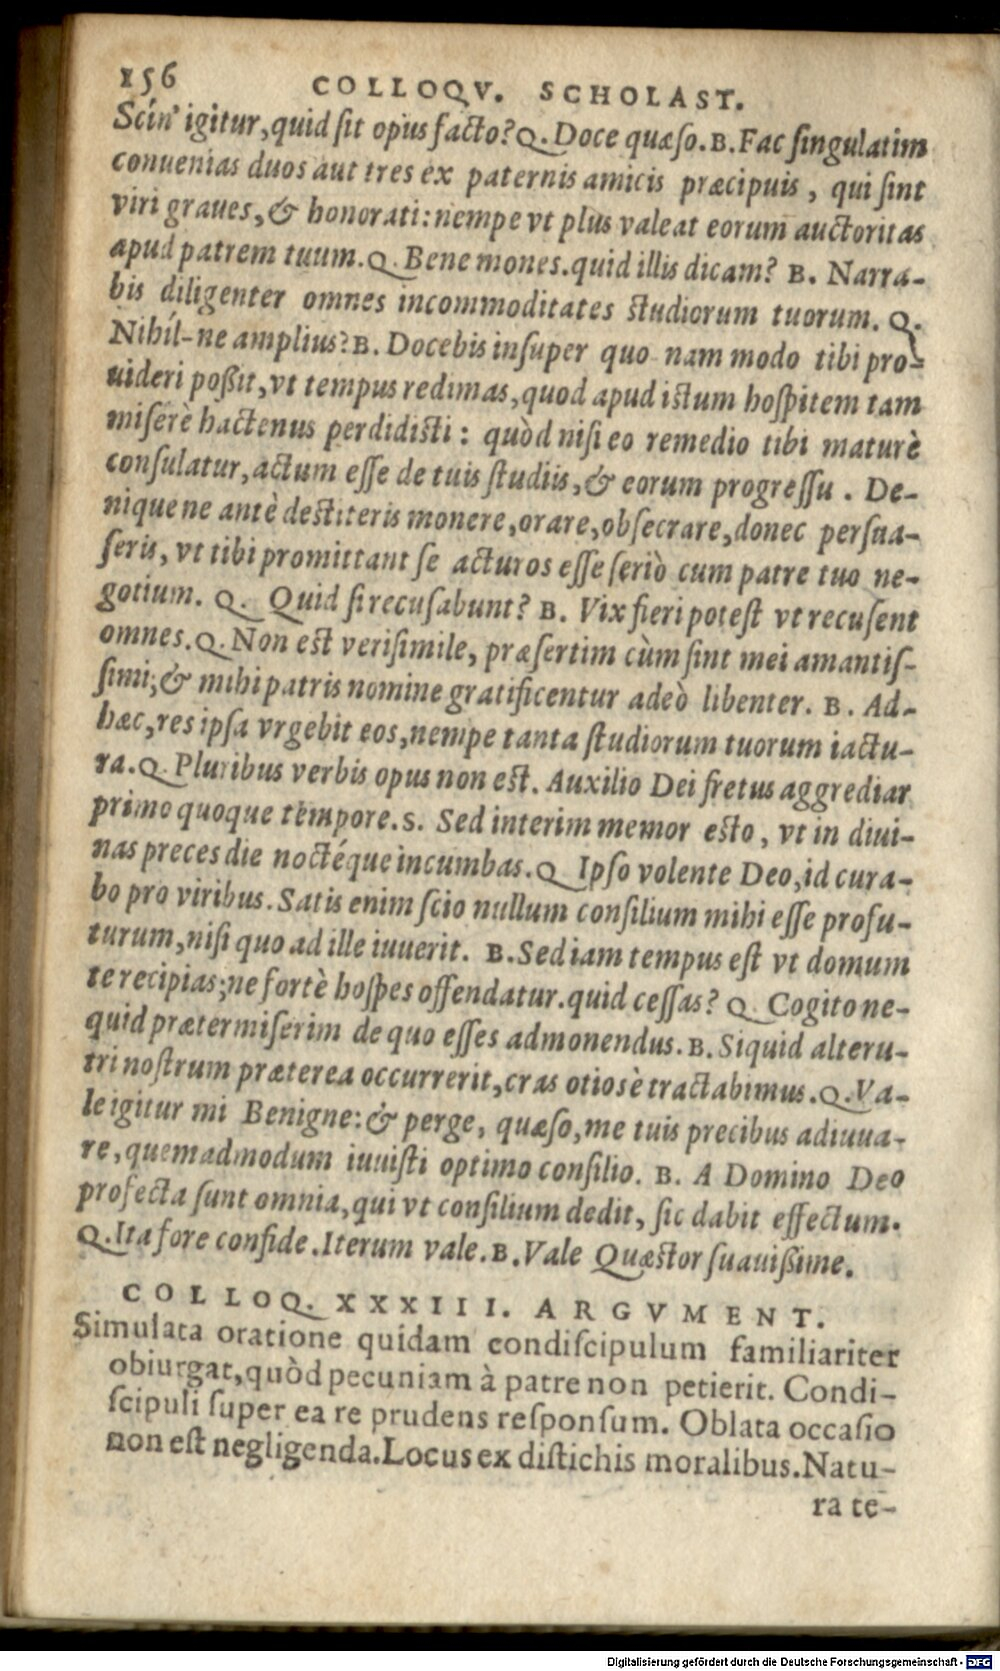 156 COLLOQV. SCHOLAST.
Scin' igitur, quid ſit opus facto? Q. Doce quæſo. B. Fac ſingulatim
conuenias duos aut tres ex paternis amicis præcipuis, qui ſint
viri graues, & honorati: nempe vt plus valeat eorum auctoritas
apud patrem tuum. Q. Bene mones. quid illis dicam? B. Narra-
bis diligenter omnes incommoditates ſtudiorum tuorum. Q.
Nihil-ne amplius? B. Docebis inſuper quo nam modo tibi pro-
uideri poßit, vt tempus redimas, quod apud iſtum hoſpitem tam
miſerè hactenus perdidiſti: quòd niſi eo remedio tibi maturè
conſulatur, actum eſſe de tuis ſtudiis, & eorum progreſſu. De-
nique ne antè deſtiteris monere, orare, obſecrare, donec perſua-
ſeris, vt tibi promittant ſe acturos eſſe ſeriò cum patre tuo ne-
gotium. Q. Quid ſi recuſabunt? B. Vix fieri poteſt vt recuſent
omnes. Q. Non eſt veriſimile, præſertim cùm ſint mei amantiſ-
ſimi; & mihi patris nomine gratificentur adeò libenter. B. Ad-
hæc, res ipſa vrgebit eos, nempe tanta ſtudiorum tuorum iactu-
ra. Q. Pluribus verbis opus non eſt. Auxilio Dei fretus aggrediar
primo quoque tempore. S. Sed interim memor eſto, vt in diui-
nas preces die noctéque incumbas. Q Ipſo volente Deo, id cura-
bo pro viribus. Satis enim ſcio nullum conſilium mihi eſſe profu-
turum, niſi quo ad ille iuuerit. B. Sed iam tempus eſt vt domum
te recipias; ne fortè hoſpes offendatur. quid ceſſas? Q. Cogito ne-
quid prætermiſerim de quo eſſes admonendus. B. Siquid alteru-
tri noſtrum præterea occurrerit, cras otiosè tractabimus. Q. Va-
le igitur mi Benigne: & perge, quæſo, me tuis precibus adiuua-
re, quemadmodum iuuiſti optimo conſilio. B. A Domino Deo
profecta ſunt omnia, qui vt conſilium dedit, ſic dabit effectum.
Q. Ita fore confide. Iterum vale. B. Vale Quæſtor ſuauißime.
COLLOQ. XXXIII. ARGVMENT.
Simulata oratione quidam condiſcipulum familiariter
obiurgat, quòd pecuniam à patre non petierit. Condi-
ſcipuli ſuper ea re prudens reſponſum. Oblata occaſio
non eſt negligenda. Locus ex diſtichis moralibus. Natu-
ra te-
Digitalisierung gefördert durch die Deutsche Forschungsgemeinschaft - DFG